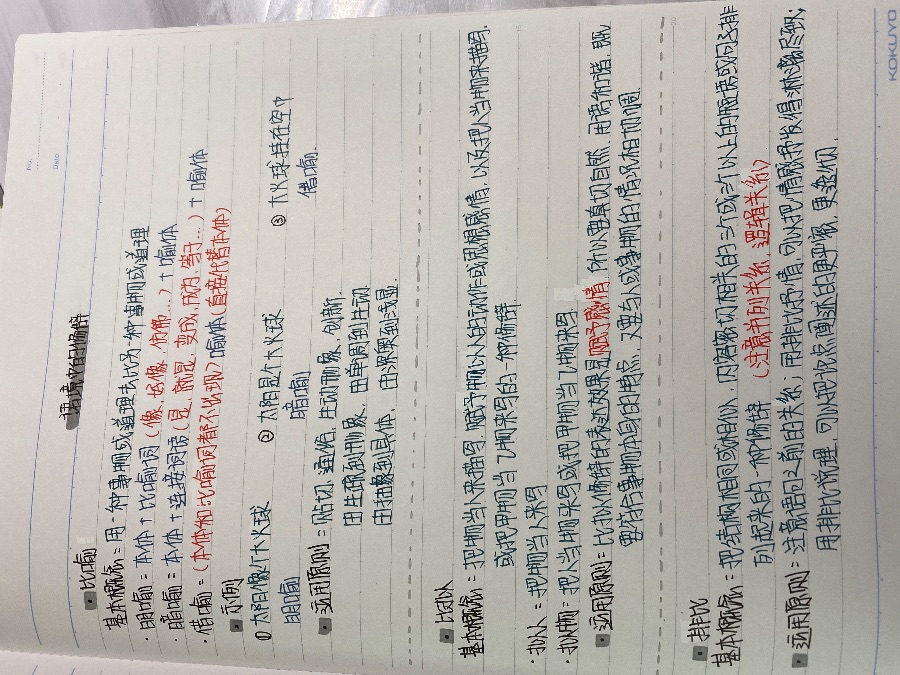 No.
Date
语境中的修辞
比喻
基本概念：用一种事物或道理去比另一种事物或道理
·明喻=本体+比喻词（像、好像、仿佛…）+喻体
·暗喻=本体+连接词语（是、就是、变成、成为、等于…）+喻体
·借喻=（本体和比喻词都不必现）喻体（直接代替本体）
示例
① 太阳像个大火球 ② 太阳是个大火球 ③ 大火球挂在空中
明喻 暗喻 借喻.
运用原则=贴切、通俗、生动形象、创新.
由生硬到形象、由单调到生动
由抽象到具体、由深奥到浅显.
比拟
基本概念：把物当人来描写，赋予物以人的动作或思想感情，以及把人当物来描写.
或把甲物当乙物来写的一种修辞
·拟人=把物当人来写
·拟物=把人当物来写或把甲物当乙物来写.
运用原则=比拟修辞的表达效果是赋予感情，所以要真切自然、用语和谐、既
要符合事物本身的特点，又要与人或事物的情况相协调.
排比
基本概念=把结构相同或相似、内容密切相关的三个或三个以上的短语或句子排
列起来的一种修辞（注意并列关系、逻辑关系）
运用原则=注意语句之前的关系；用排比抒情，可以把情感抒发得淋漓尽致；
用排比说理，可以把论点阐述的更严密、更透彻.
KOKUYO